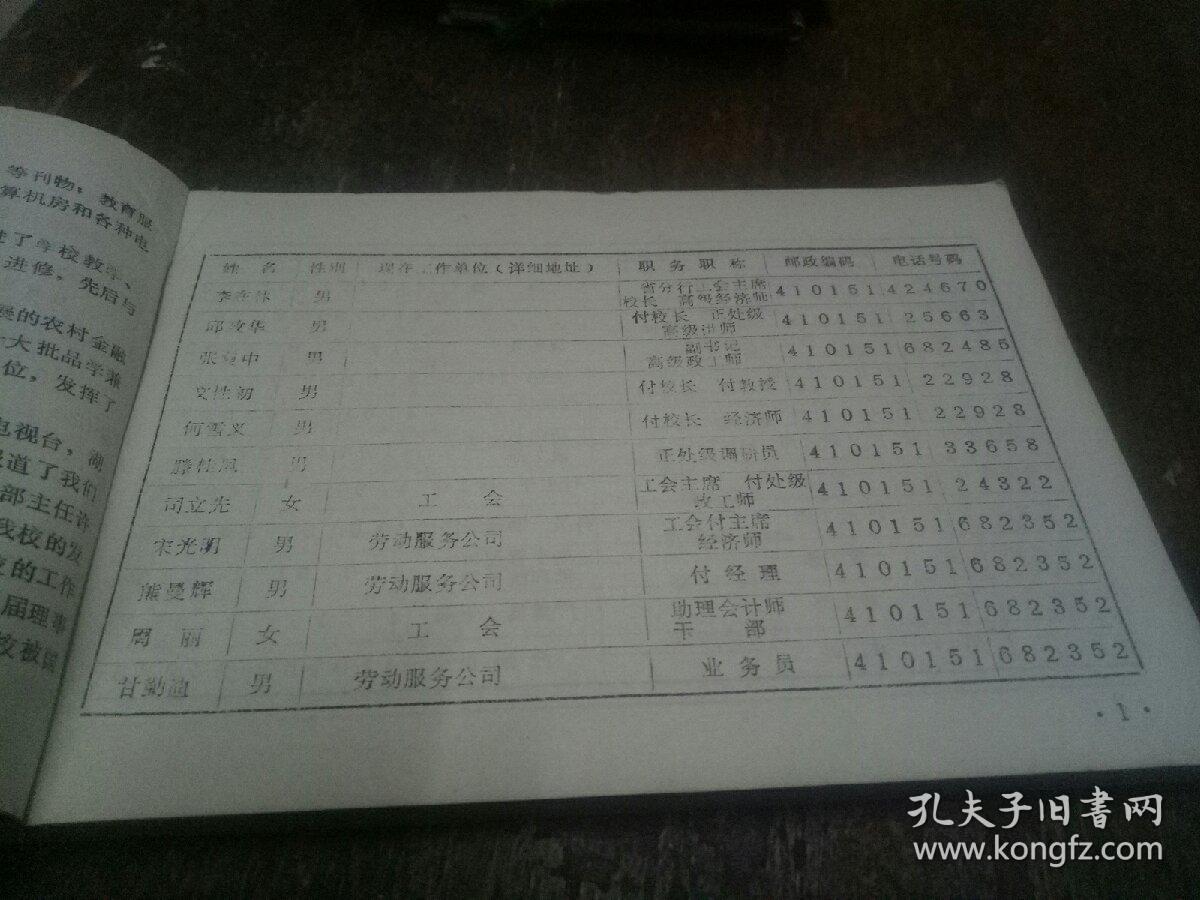 等刊物，教育服
算机房和各种电
进了学校教学、
进修，先后与
展的农村金融
大批品学兼
位，发挥了
电视台，湖
报道了我们
部主任许
我校的发
校的工作
届理事
校被国
姓 名 性别 现在工作单位（详细地址） 职务职称 邮政编码 电话号码
男 省分行工会主席 校长 高级经济师 410151 424670
邱 华 男 付校长 正处级 高级讲师 410151 25663
张 中 男 副书记 高级政工师 410151 682485
文性初 男 付校长 付教授 410151 22928
何雪义 男 付校长 经济师 410151 22928
滕桂凤 男 正处级调研员 410151 33658
司立先 女 工 会 工会主席 付处级 政工师 410151 24322
宋光明 男 劳动服务公司 工会付主席 经济师 410151 682352
熊曼辉 男 劳动服务公司 付经理 410151 682352
周 丽 女 工 会 助理会计师 干 部 410151 682352
甘勤迪 男 劳动服务公司 业务员 410151 682352
·1·
孔夫子旧書网
www.kongfz.com